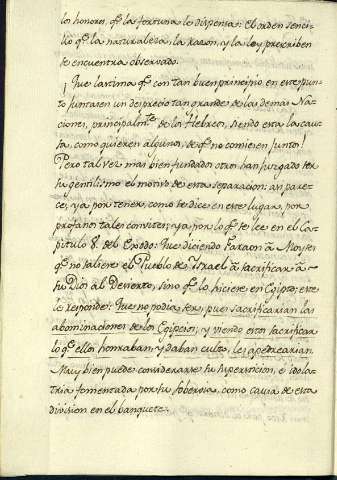 los honores, qᵉ la fortuna le dispensa: El orden senci-
llo qᵉ la naturaleza, la razon, y la ley prescriben
se encuentra observado.
¡Que lastima qᵉ con tan buen principio en este pun-
to juntasen un desprecio tan grande de las demas Na-
ciones, principalmᵗᵉ de los Hebreos, siendo esta la cau-
sa, como quieren algunos, de qᵉ no comiesen juntos!
Pero tal vez mas bien fundados otros han juzgado ser
su gentilismo el motivo de esta separacion: asi pare-
ce, ya por tenerse, como se dice en este lugar, por
profanos tales convites, ya por lo qᵉ se lee en el Ca-
pitulo 8. del Exodo: Que diciendo Faraon â Moyses
qᵉ no saliere el Pueblo de Israel â sacrificar â
su Dios al Desierto, sino qᵉ lo hiciere en Egipto; este
le responde: Que no podia ser, pues sacrificarian las
abominaciones de los Egipcios, y viendo estos sacrificar
lo qᵉ ellos honraban, y daban culto, les apedrearian.
Muy bien puede considerarse su supersticion, e idola-
tria fomentada por su soberbia, como causa de esta
division en el banquete.